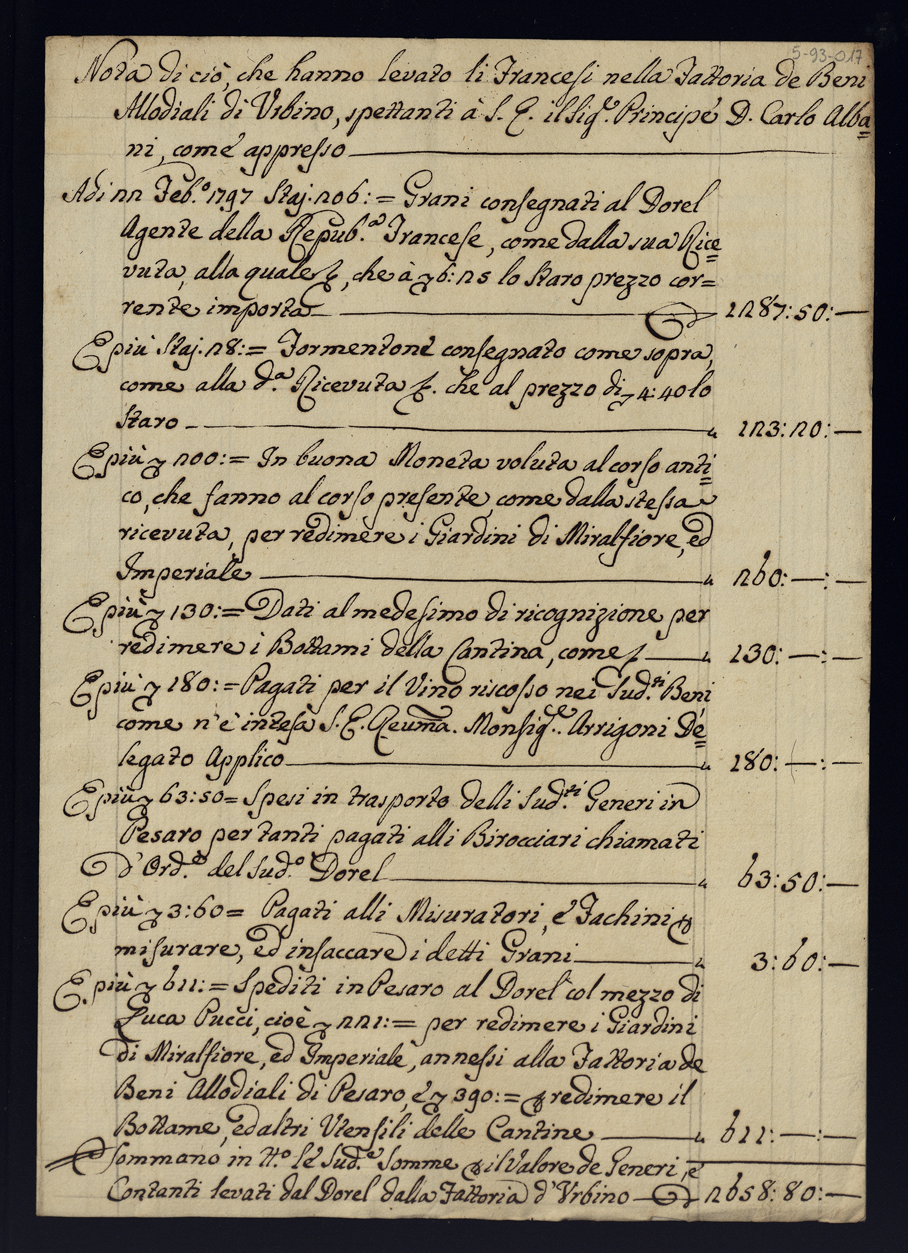 5-93-017
Nota di ciò, che hanno levato li Francesi nella Fattoria de Beni
Allodiali di Urbino, spettanti à S. E. il Sig.e Principe D. Carlo Alba=
ni, come appresso
Adi 22 Feb.o 1797 Staj. 206:= Grani consegnati al Dorel
Agente della Repub.a Francese, come dalla sua Rice=
vuta, alla quale &, che à ∇ 6:25 lo Staro prezzo cor=
rente importa — 1287:50:—
E più Staj. 28:= Formentone consegnato come sopra,
come alla d.a Ricevuta &. che al prezzo di ∇ 4:40 lo
Staro — " 123:20:—
E più ∇ 200:= In buona Moneta voluta al corso anti=
co, che fanno al corso presente, come dalla stessa
ricevuta, per redimere i Giardini di Miralfiore, ed
Imperiale — " 260:—:—
E più ∇ 130:= Dati al medesimo di ricognizione per
redimere i Bottami della Cantina, come & — " 130:—:—
E più ∇ 180:= Pagati per il Vino riscosso nei Sud.ti Beni
come n'è intesa S. E. Reuma. Monsig.e Arrigoni De=
legato Applico — " 180:—:—
E più ∇ 63:50= Spesi in trasporto delli Sud.ti Generi in
Pesaro per tanti pagati alli Birocciari chiamati
d'Ord.e del Sud.o Dorel — " 63:50:—
E più ∇ 3:60= Pagati alli Misuratori, e Fachini ꝑ
misurare, ed insaccare i detti Grani — " 3:60:—
E. più ∇ 611:= Spediti in Pesaro al Dorel col mezzo di
Luca Pucci, cioè ∇ 221:= per redimere i Giardini
di Miralfiore, ed Imperiale, annessi alla Fattoria de
Beni Allodiali di Pesaro, e ∇ 390:= ꝑ redimere il
Bottame, ed altri Utensili delle Cantine — " 611:—:—
Sommano in tt.o le Sud.e Somme ꝑ il Valore de Generi, e
Contanti levati dal Dorel dalla Fattoria d'Urbino — 2658:80:—